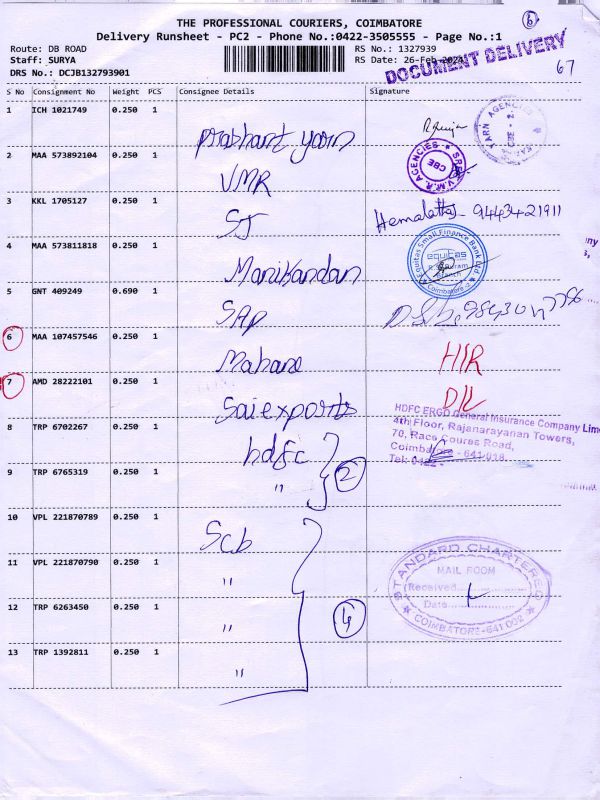 THE PROFESSIONAL COURIERS, COIMBATORE
Delivery Runsheet - PC2 - Phone No.:0422-3505555 - Page No.:1
6
Route: DB ROAD
RS No.: 1327939
Staff: SURYA
RS Date: 26-Feb-2024
DOCUMENT DELIVERY
67
DRS No.: DCJB132793901
S No Consignment No Weight PCS Consignee Details Signature
1 ICH 1021749 0.250 1 prashant yarn
YARN AGENCIES CBE - 2
2 MAA 573892104 0.250 1 VMR
SREE V.M.R. AGENCIES CBE
3 KKL 1705127 0.250 1 SJ Hemalatha - 9443421911
4 MAA 573811818 0.250 1 Manikandan
Equitas Small Finance Bank Ltd equitas R.S.Puram Branch Coimbatore
5 GNT 409249 0.690 1 SAP
6 MAA 107457546 0.250 1 Mahave
7 AMD 28222101 0.250 1 Sai exports D/L
HDFC ERGO General Insurance Company Lim
4th Floor, Rajanarayanan Towers,
70, Race Course Road,
Coimbatore - 641 018.
Tel: 0422
8 TRP 6702267 0.250 1 hdfc
9 TRP 6765319 0.250 1 " 2
10 VPL 221870789 0.250 1 Scb
11 VPL 221870790 0.250 1 "
STANDARD CHARTERED
MAIL ROOM
Received
Date
COIMBATORE-641 002
12 TRP 6263450 0.250 1 " 4
13 TRP 1392811 0.250 1 "